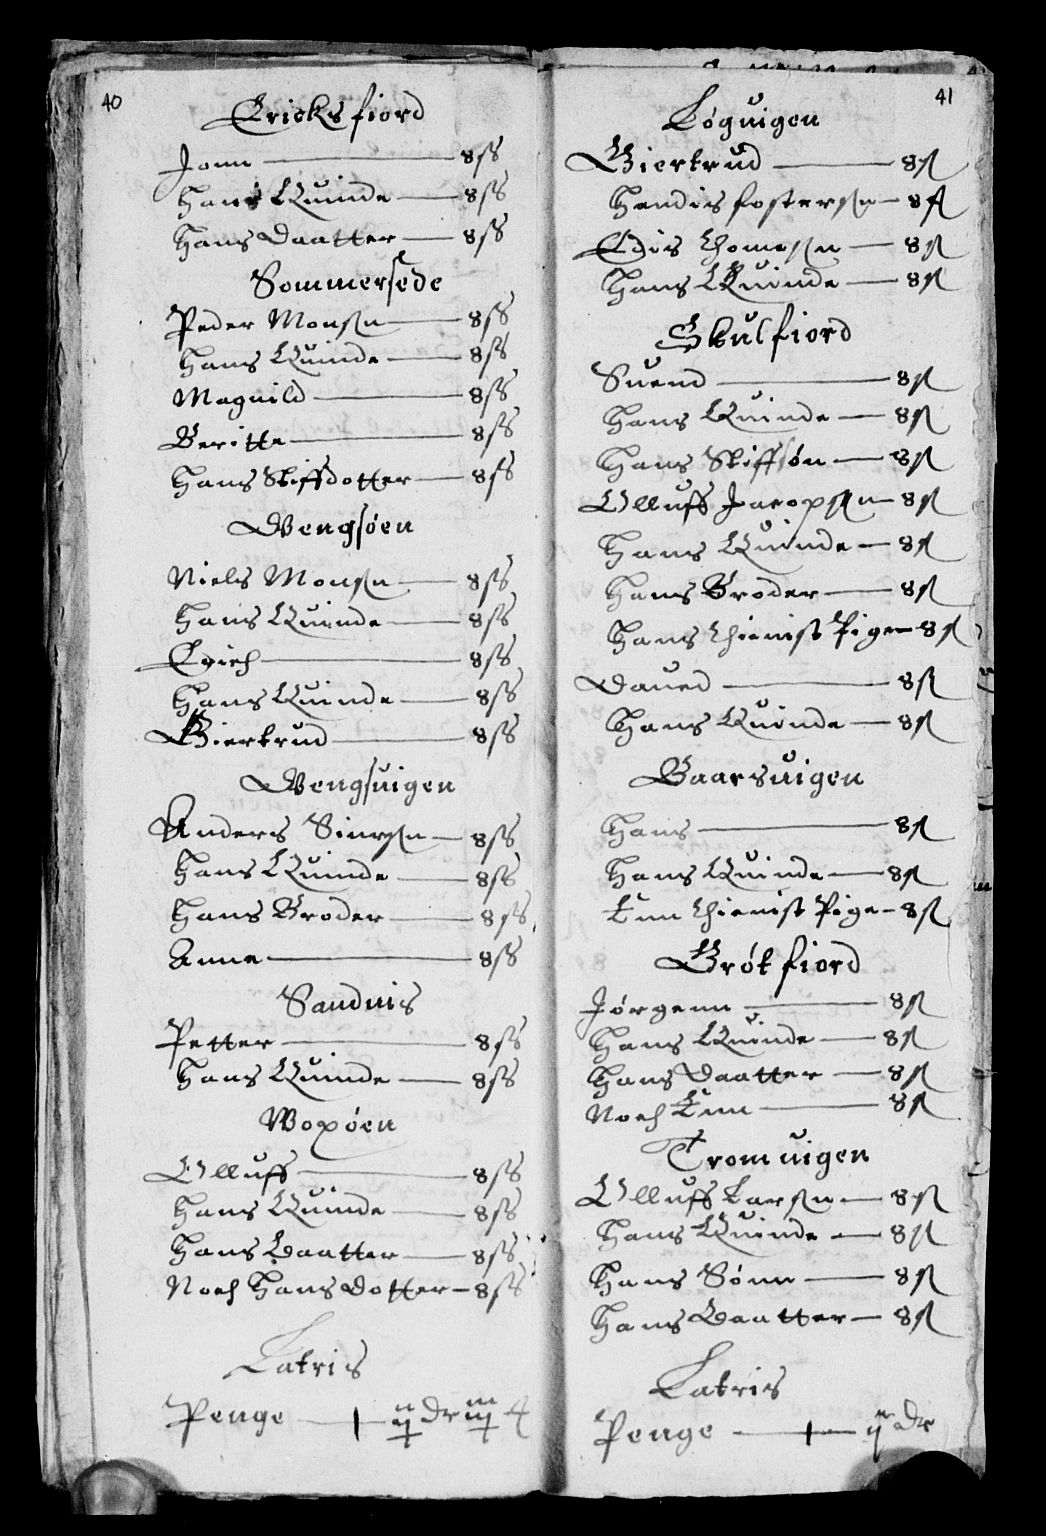 40
Ericks fiord
Jonn — 8 ß
Hans Quinde — 8 ß
Hans Daatter — 8 ß
Sommersede
Peder Monsøn — 8 ß
Hans Quinde — 8 ß
Magnild — 8 ß
Beritte — 8 ß
Hans Stiffdotter — 8 ß
Wengsøen
Niels Monsøn — 8 ß
Hans Quinde — 8 ß
Erich — 8 ß
Hans Quinde — 8 ß
Giertrud — 8 ß
Wengsuigen
Anders — 8 ß
Hans Quinde — 8 ß
Hans Broder — 8 ß
Anne — 8 ß
Sandnis
Petter — 8 ß
Hans Quinde — 8 ß
Woxøen
Olluff — 8 ß
Hans Quinde — 8 ß
Hans Daatter — 8 ß
Noch Hans Dotter — 8 ß
Latris
Penge
41
Løguigen
Giertrud — 8 ß
Hendis fostersøn — 8 ß
Thomesøn — 8 ß
Hans Quinde — 8 ß
Skulfiord
Suend — 8 ß
Hans Quinde — 8 ß
Hans Stiffsøn — 8 ß
Olluff Jacopsøn — 8 ß
Hans Quinde — 8 ß
Hans Broder — 8 ß
Hans thienist Pige — 8 ß
Dauid — 8 ß
Hans Quinde — 8 ß
Baarsuigen
Hans — 8 ß
Hans Quinde — 8 ß
Enn thienist Pige — 8 ß
Grøtfiord
Jørgenn — 8 ß
Hans Quinde — 8 ß
Hans Daatter — 8 ß
Noch Enn — 8 ß
Tromuigen
Olluff Larsøn — 8 ß
Hans Quinde — 8 ß
Hans Sønn — 8 ß
Hans Daatter — 8 ß
Latris
Penge